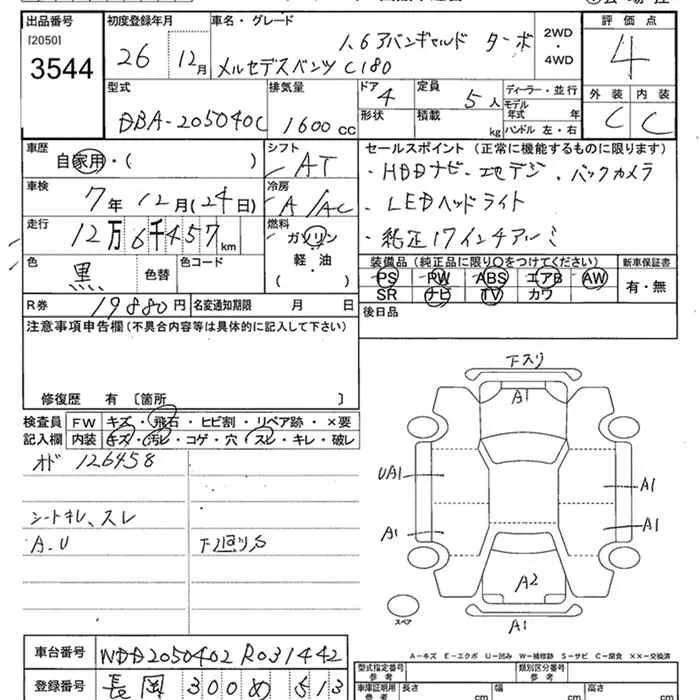 出品番号 初度登録年月 車名・グレード 2WD・4WD 評価点
[2050]
3544 26 12月 1.6アバンギャルド ターボ 4
メルセデスベンツ C180
型式 排気量 ドア 定員 ディーラー・並行 外装 内装
DBA-205040C 1600cc 4 5人 モデル年式 年 C C
形状 積載 kg ハンドル 左・右
車歴 シフト セールスポイント (正常に機能するものに限ります)
自家用・( ) AT ・HDDナビ・エセデジ・バックカメラ
車検 冷房 ・LEDヘッドライト
7年12月(24日) A/AC ・純正17インチアルミ
走行 燃料
12万6千457km ガソリン
軽・油
( )
色 色替 色コード 装備品 (純正品に限り○をつけてください) 新車保証書
黒 PS PW ABS エアB AW 有・無
SR ナビ TV カワ
R券 19880円 名変通知期限 月 日 後日品
注意事項申告欄 (不具合内容等は具体的に記入して下さい)
修復歴 有 〔箇所 〕
検査員記入欄 FW キズ・飛石・ヒビ割・リペア跡・×要
内装 キズ・汚レ・コゲ・穴・スレ・キレ・破レ
オド 126458
シートキレ、スレ
A.U 下廻りS
下スリ
A1
UA1 A1
A1 A1
A2
スペア A1
A－キズ E－エクボ U－凹み W－補修跡 S－サビ C－腐食 ××－交換済
車台番号 WDD2050402R031442
登録番号 長岡 300 め 513
型式指定番号 参考 類別区分番号 参考
車庫証明用 参考 長さ cm 幅 cm 高さ cm